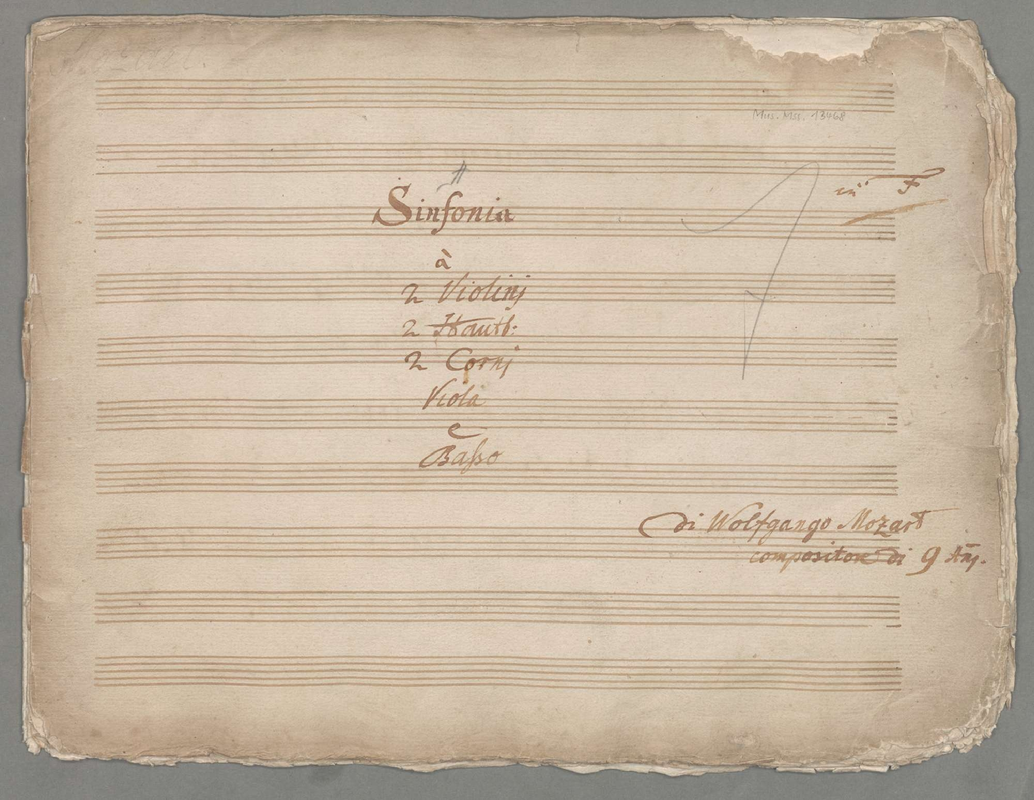 Mus. Ms. 13468
in F
Sinfonia
à
2 Violinj
2 Hautb:
2 Cornj
Viola
e
Basso
di Wolfgango Mozart
compositore di 9 Añj.